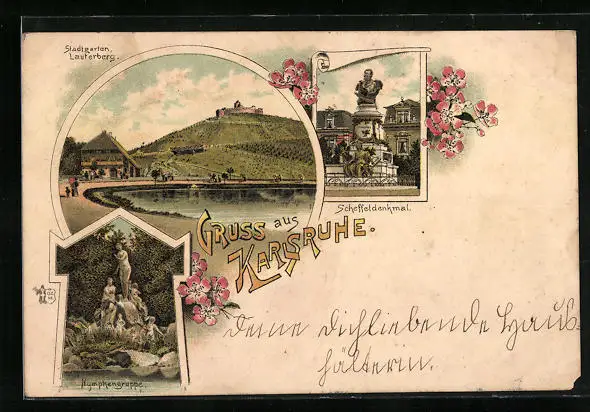 Stadtgarten,
Lauterberg.
Scheffeldenkmal.
Gruss aus
Karlsruhe.
Nymphengruppe.
Deine dichliebende Haus-
hälterin.